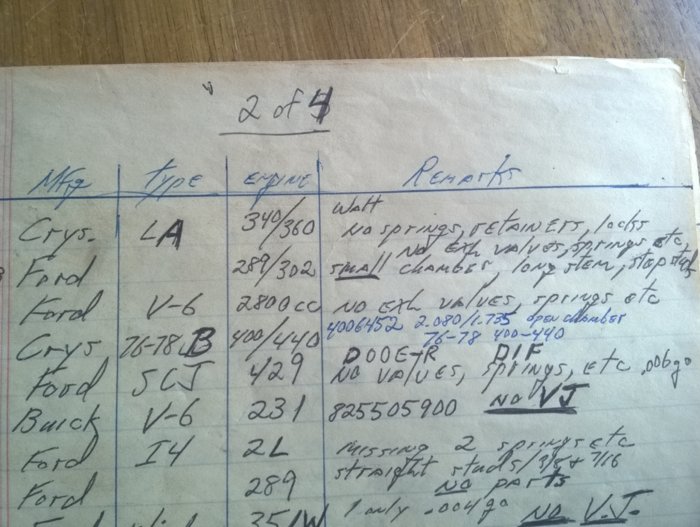 2 of 4
Mfg Type Engine Remarks
Watt
Crys. LA 340/360 No springs, retainers, locks
No Exh valves, springs, etc,
Ford 289/302 small chamber, long stem, step stud
Ford V-6 2800cc No Exh valves, springs etc
4006452 2.080/1.735 open chamber
Crys 76-78 B 400/440 76-78 400-440
DOOE-R DIF
Ford SCJ 429 No valves, springs, etc .006go
Buick V-6 231 825505900 No VJ
Ford I4 2L missing 2 springs etc
straight studs/3/8 & 7/16
Ford 289 No parts
1 only .004go
351W No V.J.